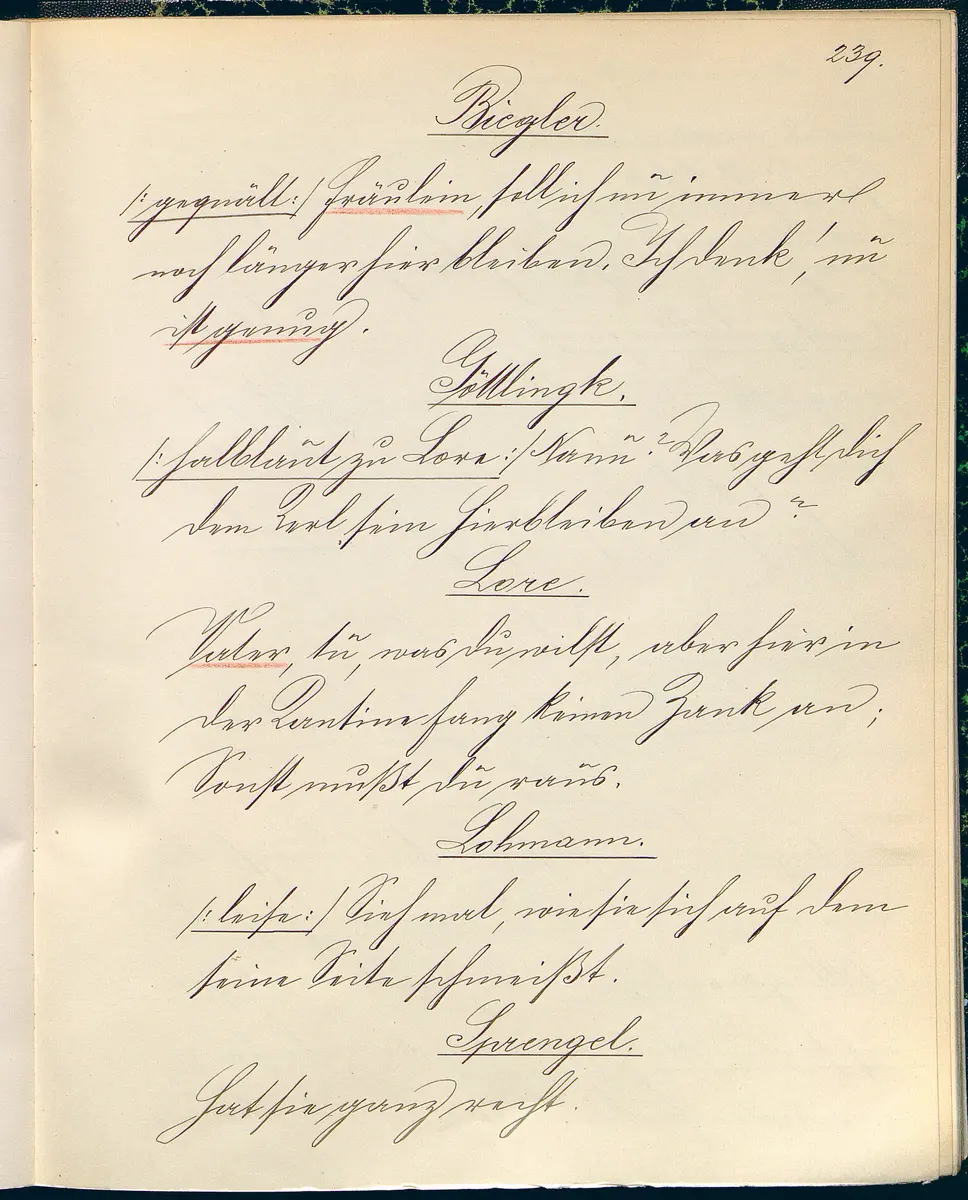 239.
Biegler.
/: gequält :/ Fräulein, soll ich nu immer
noch länger hier bleiben. Ich denk', nu
ist genug.
Göttlingk.
/: halblaut zu Lore :/ Nanu? Was geht dich
dem Kerl sein Hierbleiben an?
Lore.
Vater, tu, was du willst, aber hier in
der Kantine fang keinen Zank an;
Sonst mußt du raus.
Lohmann.
/: leise :/ Sieh mal, wie sie sich auf dem
seine Seite schmeißt.
Sprengel.
Hat sie ganz recht.